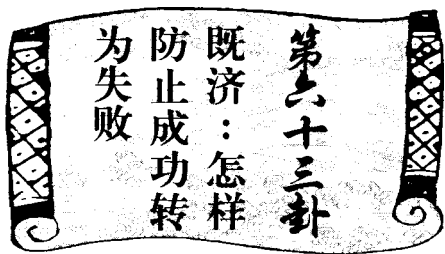 第六十三卦
既济：怎样
防止成功转
为失败